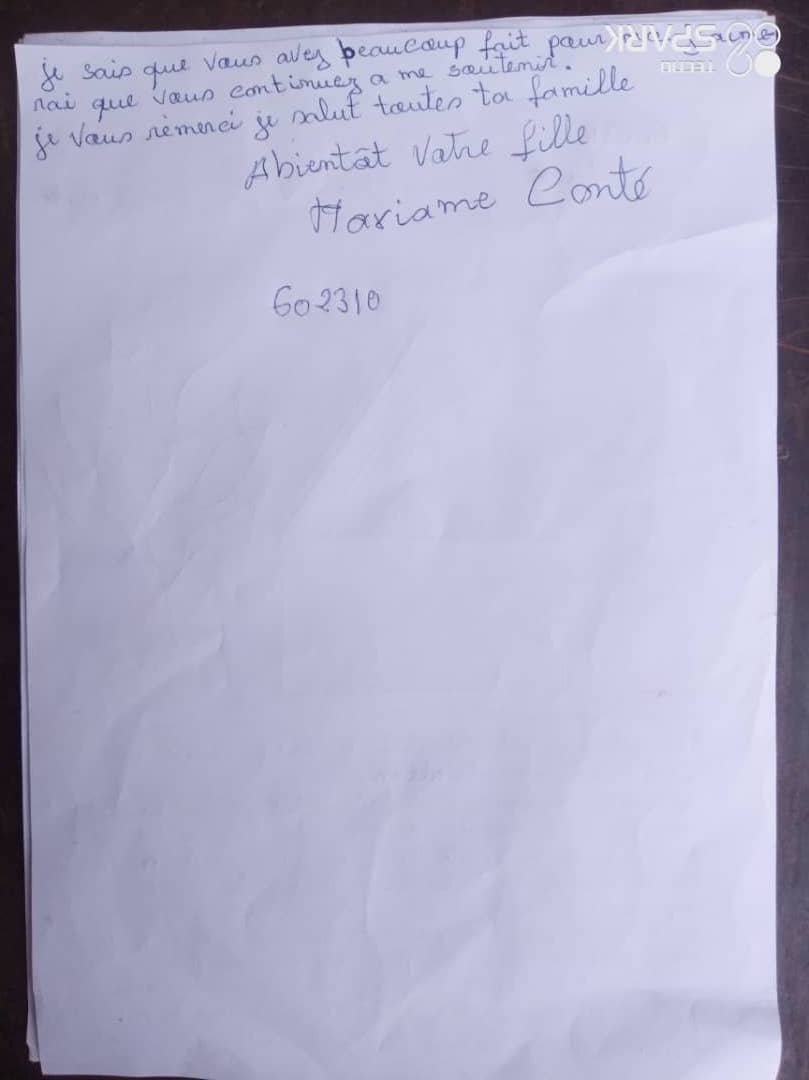 je sais que vous avez beaucoup fait pour moi j'aime
rai que vous continuez a me soutenir.
je vous remerci je salut toutes ta famille
Abientôt votre fille
Mariame Conté
602310
SPARK
TECNO